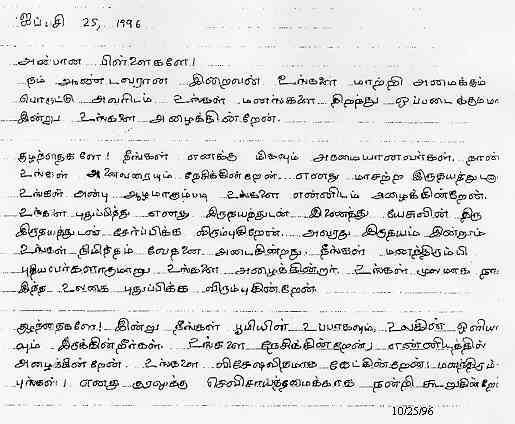 ஐப்பசி 25, 1996
அன்பான பிள்ளைகளே!
நம் ஆண்டவரான இறைவன் உங்களை மாற்றி அமைக்கும்
பொருட்டு அவரிடம் உங்கள் மனங்களை திறந்து ஒப்படைக்கும்படி
இன்று உங்களை அழைக்கின்றேன்.
குழந்தைகளே! நீங்கள் எனக்கு மிகவும் அருமையானவர்கள். நான்
உங்கள் அனைவரையும் நேசிக்கின்றேன். எனது மாசற்ற இருதயத்துடன்
உங்கள் அன்பு ஆழமாகும்படி உங்களை என்னிடம் அழைக்கின்றேன்.
உங்களை புதுப்பித்து எனது இருதயத்துடன் இணைத்து யேசுவின் திரு
இருதயத்துடன் சேர்ப்பிக்க விரும்புகிறேன். அவரது இருதயம் இன்றும்
உங்கள் நிமித்தம் வேதனை அடைகின்றது. நீங்கள் மனந்திரும்பி
புதியபேர்களாகுமாறு உங்களை அழைக்கின்றார். உங்கள் மூலமாக நா
இந்த உலகை புதுப்பிக்க விரும்புகின்றேன்.
குழந்தைகளே! இன்று நீங்கள் பூமியின் உப்பாகவும், உலகின் ஒளியா
வும் இருக்கின்றீர்கள். உங்களை நேசிக்கின்றேன்,
அழைக்கின்றேன். உங்களை விசேஷவிதமாக கேட்கின்றேன்: மனந்திரும்
புங்கள்! எனது குரலுக்கு செவிசாய்த்தமைக்காக நன்றி கூறுகின்றே
10/25/96